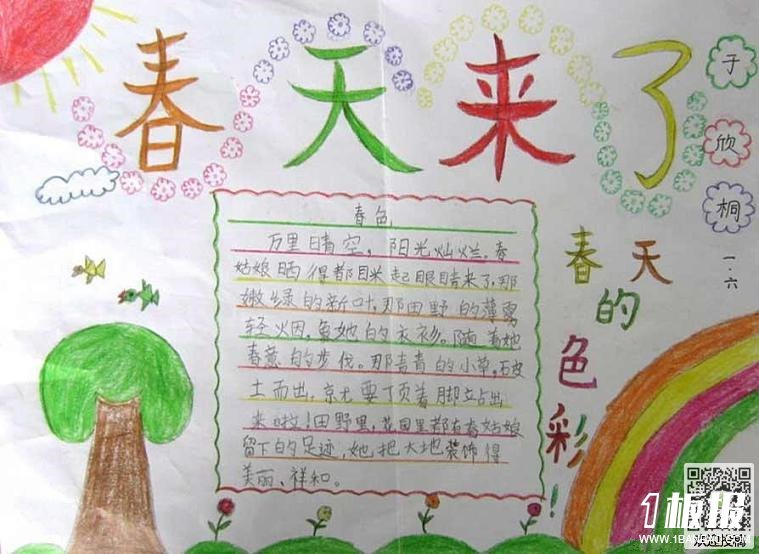 春天来了
于欣桐
一.六
春天的色彩!
春色
万里晴空，阳光灿烂。春
姑娘晒得都目米起眼睛来了，那
嫩绿的新叶，那田野的薄雾
轻烟，是她的衣衫。随着她
春意的步伐。那青青的小草，破
土而出，就要丁页着脚立占出
来啦！田野里，花园里都有春姑娘
留下的足迹，她把大地装饰得
美丽、祥和。
1板报
WWW.1BANBAO.COM
欢迎投稿